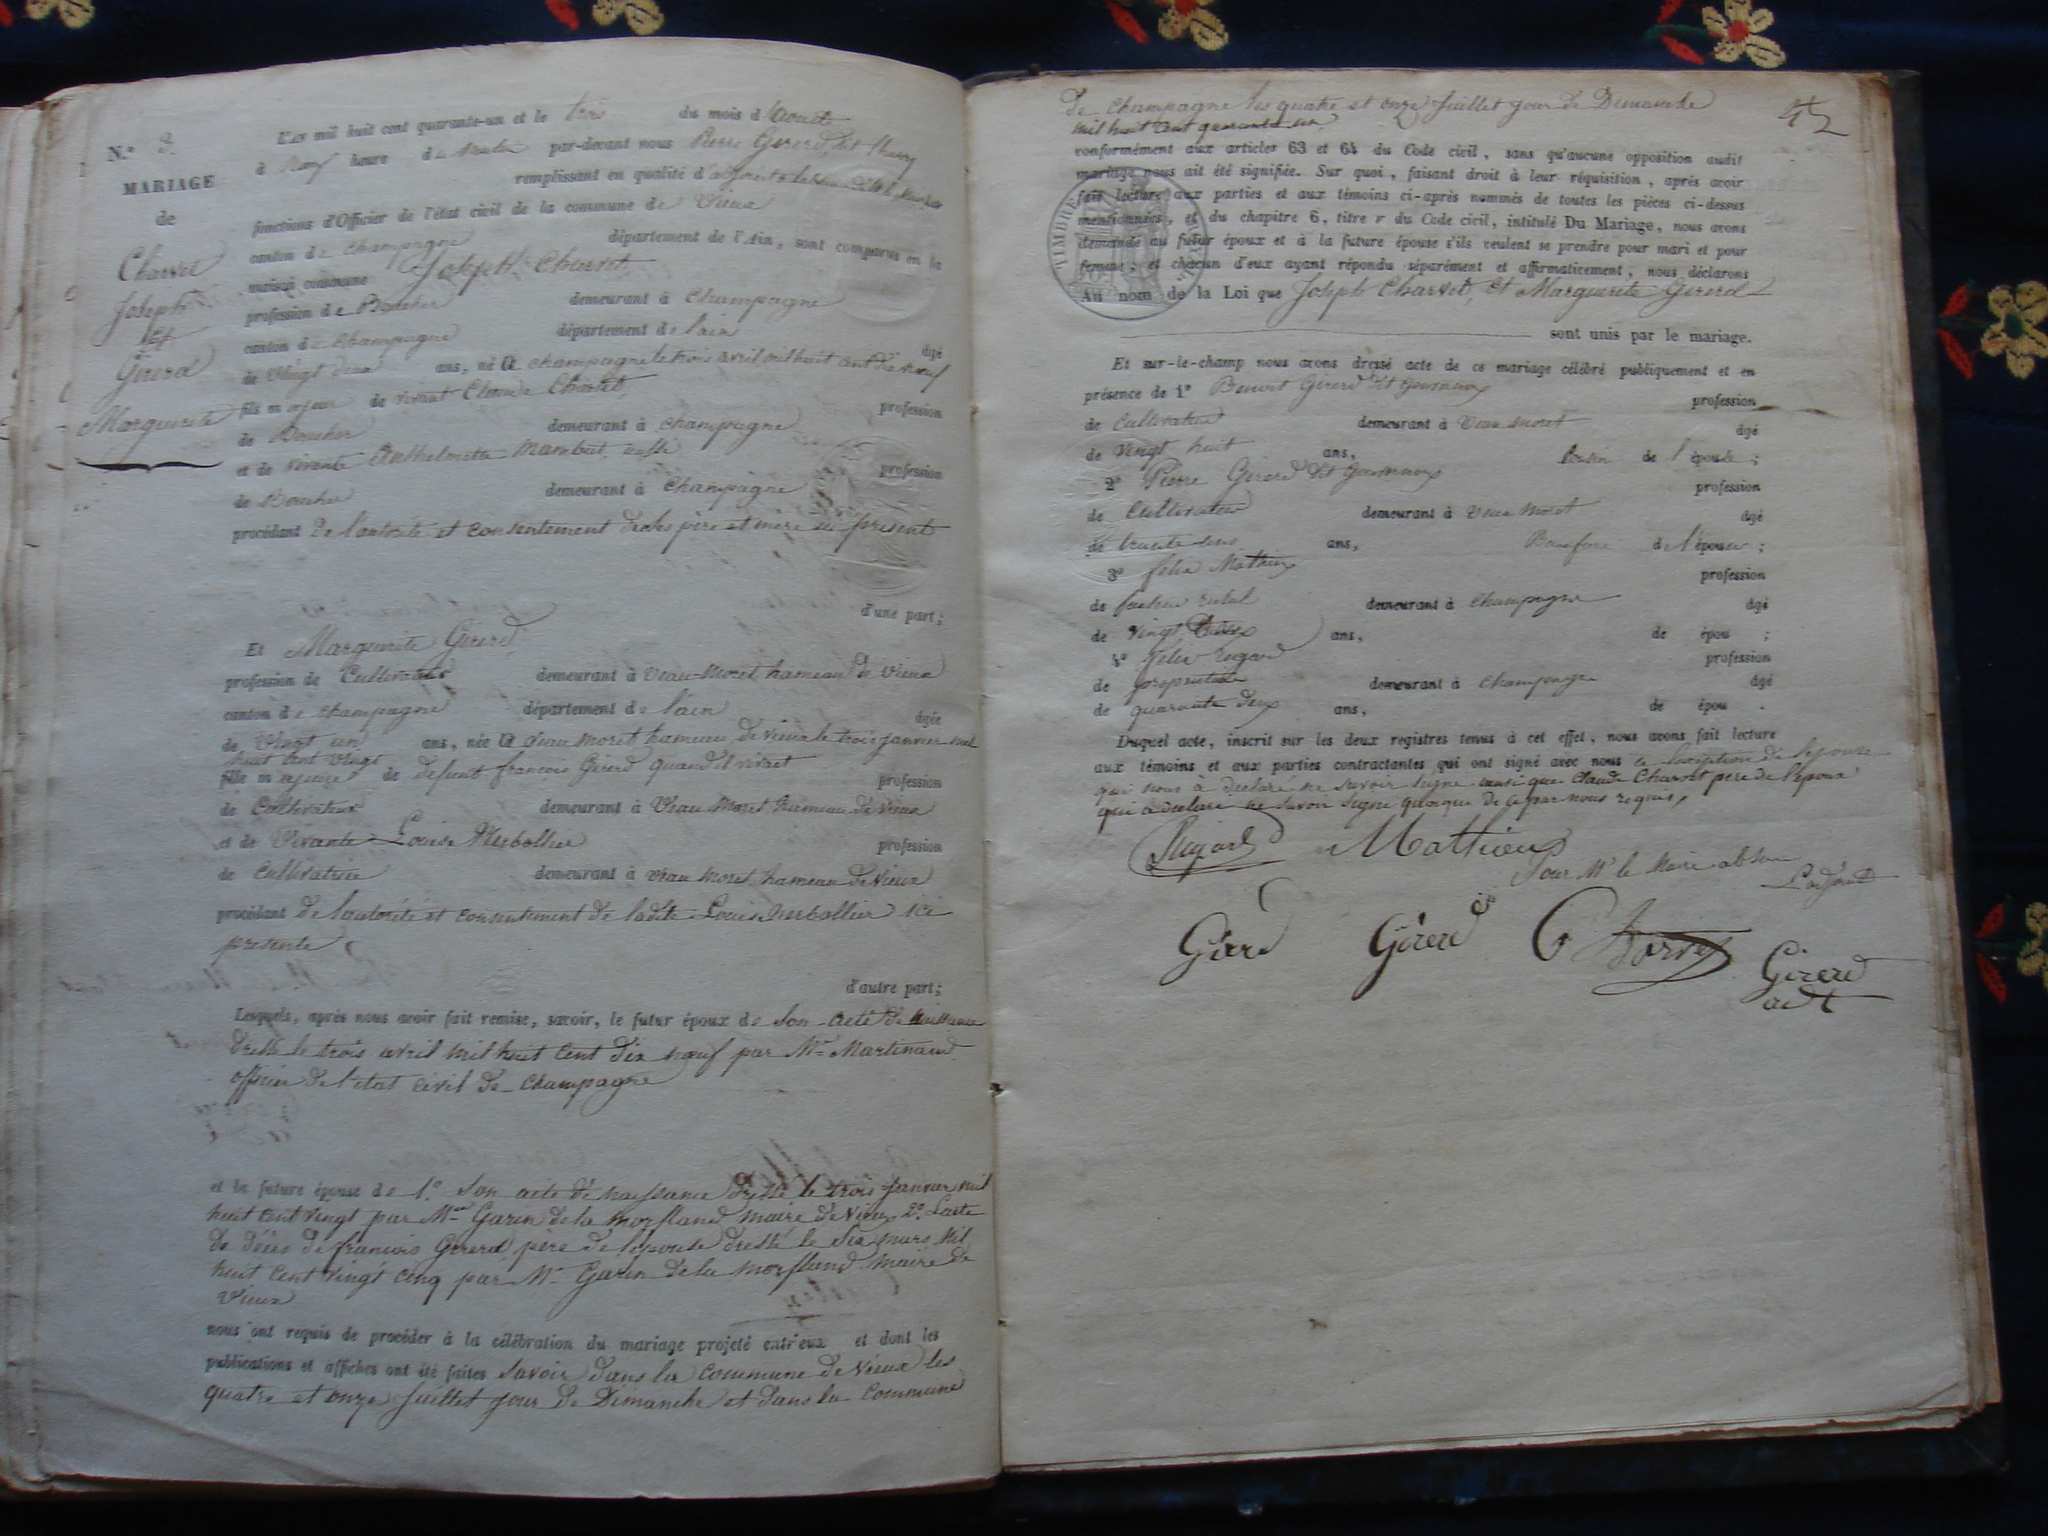 N.º 3.
MARIAGE
de
Charvet
Joseph
Et
Gererd
Marguerite
L'AN mil huit cent quarante-un et le trois du mois d'Aout
à Neuf heure du Matin par-devant nous Pierre Gererd, dit
remplissant en qualité d'adjoint
fonctions d'Officier de l'état civil de la commune de Vieux
canton de champagne département de l'Ain, sont comparus en la
maison commune Joseph Charvet,
profession de Boucher demeurant à Champagne
canton de Champagne département de l'ain âgé
de vingt deux ans, né à champagne le trois avril mil huit cent dix nœuf
fils majeur de vivant Claude Charvet, profession
de Boucher demeurant à Champagne
et de vivante Anthelmette profession
de Boucher demeurant à Champagne
procédant De l'autorité et consentement present
d'une part;
Et Marguerite Gererd
profession de Cultivateur demeurant à Veau-Moret hameau de vieux
canton de champagne département de l'ain âgée
de Vingt un ans, née à Veau Moret hameau de vieux le trois janvier mil
huit cent vingt
fille majeure de defunt francois Gererd quand il vivait profession
de Cultivateur demeurant à Veau Moret hameau de vieux
et de Vivante Louise profession
de Cultivatrice demeurant à veau moret hameau de vieux
procédant de l'autorité et consentement de ladite Louise ici
presente
d'autre part;
Lesquels, après nous avoir fait remise, savoir, le futur époux de son acte de Naissance
dressé le trois avril mil huit cent dix nœuf par Mr Martinand
officier de l'état civil de Champagne
et la future épouse de 1.º son acte de naissance dressé le trois Janvier mil
huit cent vingt par Mr Garin de la morfland maire de Vieux 2.º L'acte
de décès de francois Gererd père de l'épouse dressé le Six mars Mil
huit cent vingt cinq par Mr Garin de la morfland maire de
Vieux
nous ont requis de procéder à la célébration du mariage projeté entr'eux et dont les
publications et affiches ont été faites savoir dans la commune de Vieux les
quatre et onze Juillet jour de Dimanche et dans la Commune
de Champagne les quatre et onze Juillet jour de Dimanche
mil huit cent quarante un
conformément aux articles 63 et 64 du Code civil, sans qu'aucune opposition audit
mariage nous ait été signifiée. Sur quoi, faisant droit à leur réquisition, après avoir
fait lecture aux parties et aux témoins ci-après nommés de toutes les pièces ci-dessus
mentionnées, et du chapitre 6, titre V du Code civil, intitulé Du Mariage, nous avons
demandé au futur époux et à la future épouse s'ils veulent se prendre pour mari et pour
femme; et chacun d'eux ayant répondu séparément et affirmativement, nous déclarons
Au nom de la Loi que Joseph Charvet, et Marguerite Gererd
sont unis par le mariage.
TIMBRE
Et sur-le-champ nous avons dressé acte de ce mariage célébré publiquement et en
présence de 1º Benoit Gererd dit profession
de Cultivateur demeurant à Veau moret âgé
de Vingt huit ans, Cousin de l'épouse;
2º Pierre Gererd dit profession
de Cultivateur demeurant à Veau moret âgé
de trente ans, Beaufrere de l'épouse;
3º felix Mathieu profession
de facteur rural demeurant à Champagne âgé
de vingt ans, de épou ;
4º felix profession
de propriétaire demeurant à Champagne âgé
de quarante deux ans, de épou .
Duquel acte, inscrit sur les deux registres tenus à cet effet, nous avons fait lecture
aux témoins et aux parties contractantes qui ont signé avec nous à l'exception de l'épouse
qui nous à déclaré ne savoir signe ainsi que Claude Charvet pere de l'époux
qui à déclaré ne savoir signe quoique de ce par nous requis,
Mathieu
Pour Mr le Maire absent
L'adjoint
Gererd Gererd Charvet
Gererd
adt